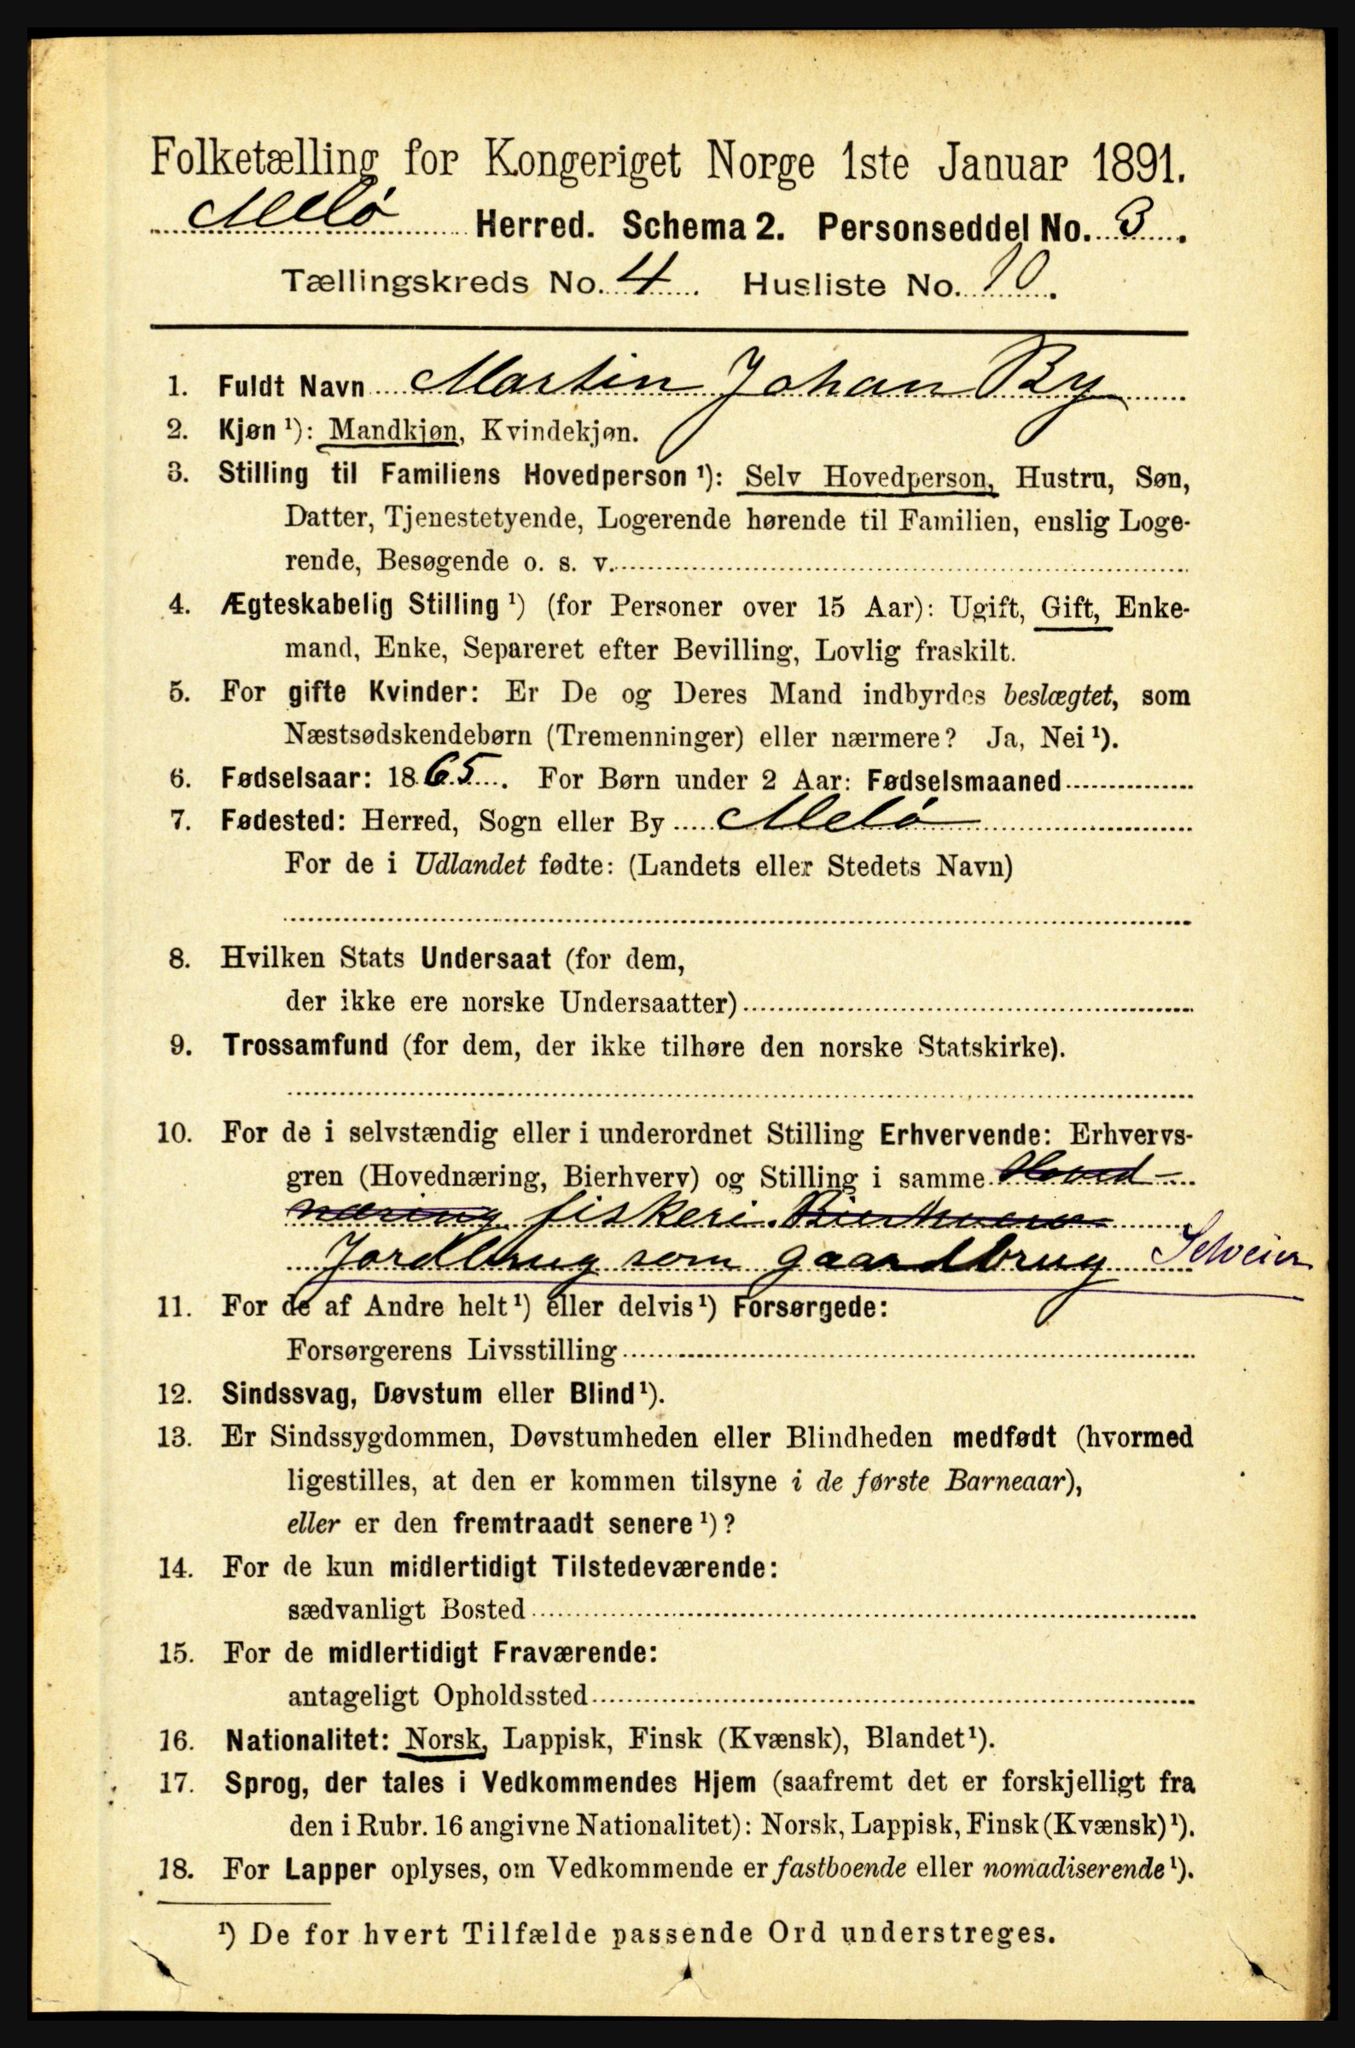 Folketælling for Kongeriget Norge 1ste Januar 1891.
Melø Herred. Schema 2. Personseddel No. 3.
Tællingskreds No. 4. Husliste No. 10.
1. Fuldt Navn Martin Johan By
2. Kjøn ¹): Mandkjøn, Kvindekjøn.
3. Stilling til Familiens Hovedperson ¹): Selv Hovedperson, Hustru, Søn,
Datter, Tjenestetyende, Logerende hørende til Familien, enslig Loge-
rende, Besøgende o. s. v.
4. Ægteskabelig Stilling ¹) (for Personer over 15 Aar): Ugift, Gift, Enke-
mand, Enke, Separeret efter Bevilling, Lovlig fraskilt.
5. For gifte Kvinder: Er De og Deres Mand indbyrdes beslægtet, som
Næstsødskendebørn (Tremenninger) eller nærmere? Ja, Nei ¹).
6. Fødselsaar: 1865. For Børn under 2 Aar: Fødselsmaaned
7. Fødested: Herred, Sogn eller By Melø
For de i Udlandet fødte: (Landets eller Stedets Navn)
8. Hvilken Stats Undersaat (for dem,
der ikke ere norske Undersaatter)
9. Trossamfund (for dem, der ikke tilhøre den norske Statskirke).
10. For de i selvstændig eller i underordnet Stilling Erhvervende: Erhvervs-
gren (Hovednæring, Bierhverv) og Stilling i samme Hoved-
næring fiskeri Bierhverv
Jordbrug som gaardbrug Selveier
11. For de af Andre helt ¹) eller delvis ¹) Forsørgede:
Forsørgerens Livsstilling
12. Sindssvag, Døvstum eller Blind ¹).
13. Er Sindssygdommen, Døvstumheden eller Blindheden medfødt (hvormed
ligestilles, at den er kommen tilsyne i de første Barneaar),
eller er den fremtraadt senere ¹)?
14. For de kun midlertidigt Tilstedeværende:
sædvanligt Bosted
15. For de midlertidigt Fraværende:
antageligt Opholdssted
16. Nationalitet: Norsk, Lappisk, Finsk (Kvænsk), Blandet ¹).
17. Sprog, der tales i Vedkommendes Hjem (saafremt det er forskjelligt fra
den i Rubr. 16 angivne Nationalitet): Norsk, Lappisk, Finsk (Kvænsk) ¹).
18. For Lapper oplyses, om Vedkommende er fastboende eller nomadiserende ¹).
¹) De for hvert Tilfælde passende Ord understreges.